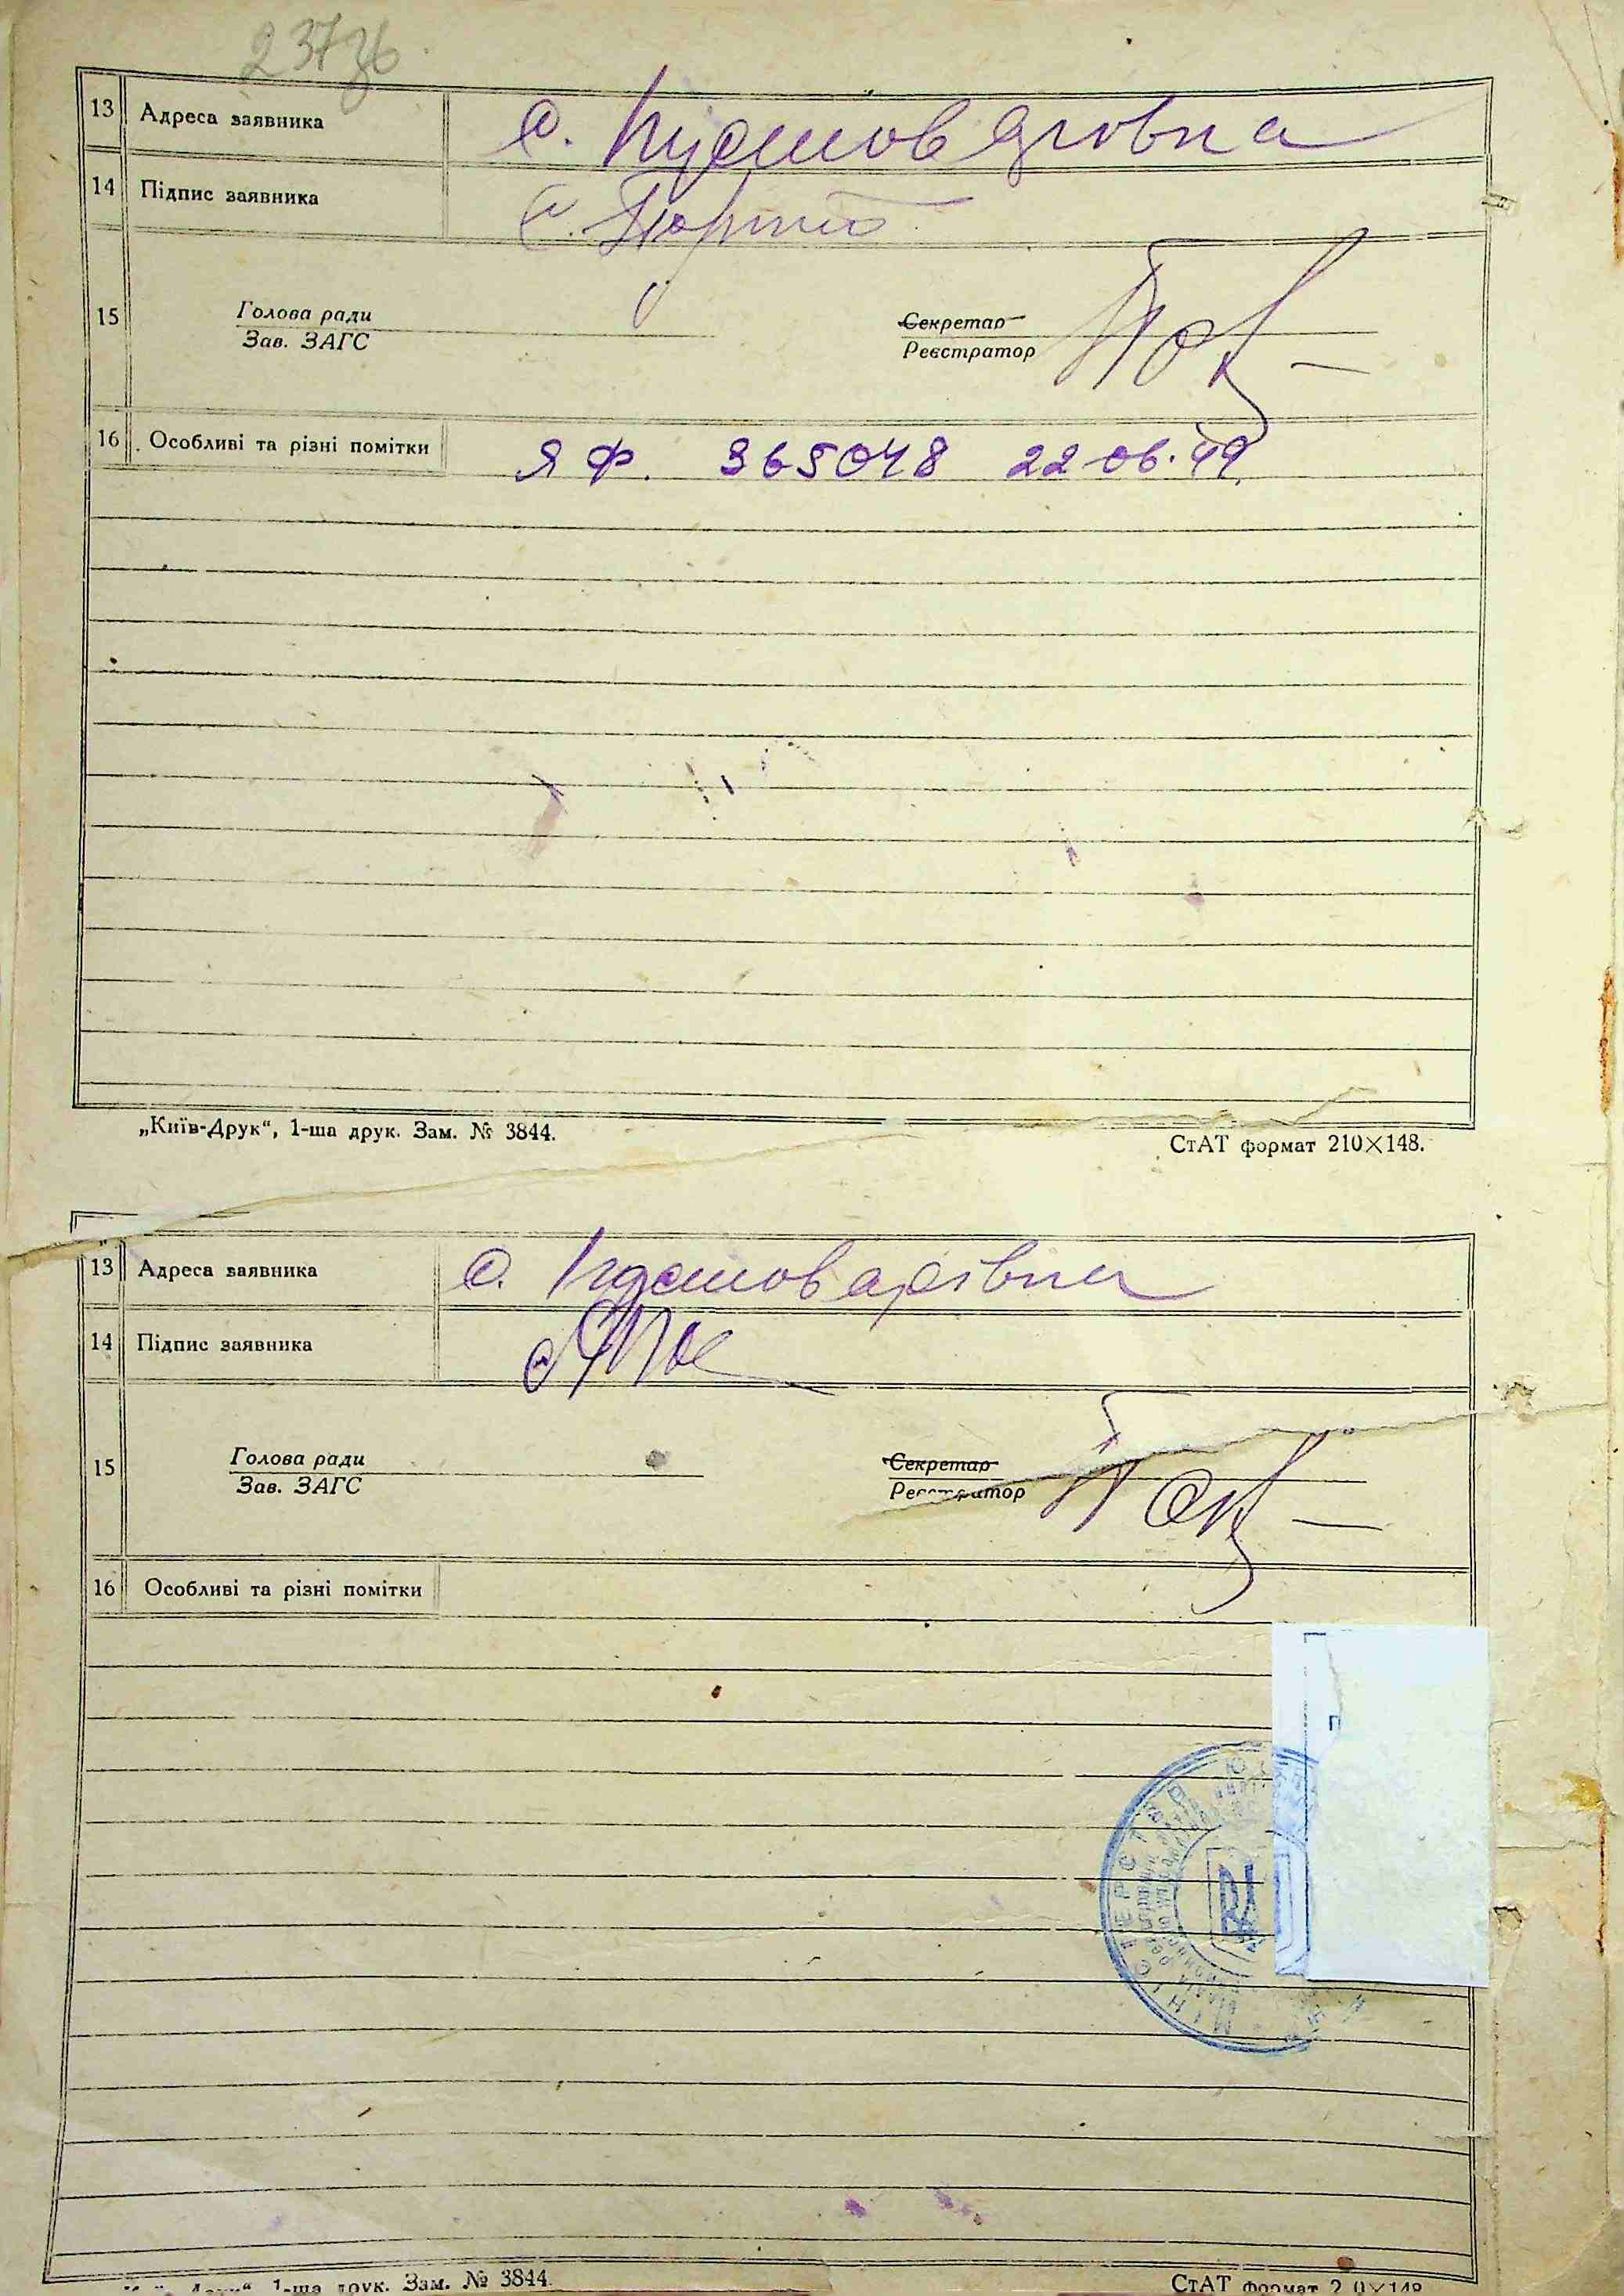 237зв
13 Адреса заявника с. Пустовагровка
14 Підпис заявника
15 Голова ради Секретар
Зав. ЗАГС Реєстратор
16 Особливі та різні помітки Я Ф. 365048 22 06. 49.
„Київ-Друк“, 1-ша друк. Зам. № 3844. СтАТ формат 210×148.
13 Адреса заявника с.
14 Підпис заявника
15 Голова ради Секретар
Зав. ЗАГС Реєстратор
16 Особливі та різні помітки
МІНІСТЕРСТВО Ю
1-ша друк. Зам. № 3844 СтАТ формат 2 0×148